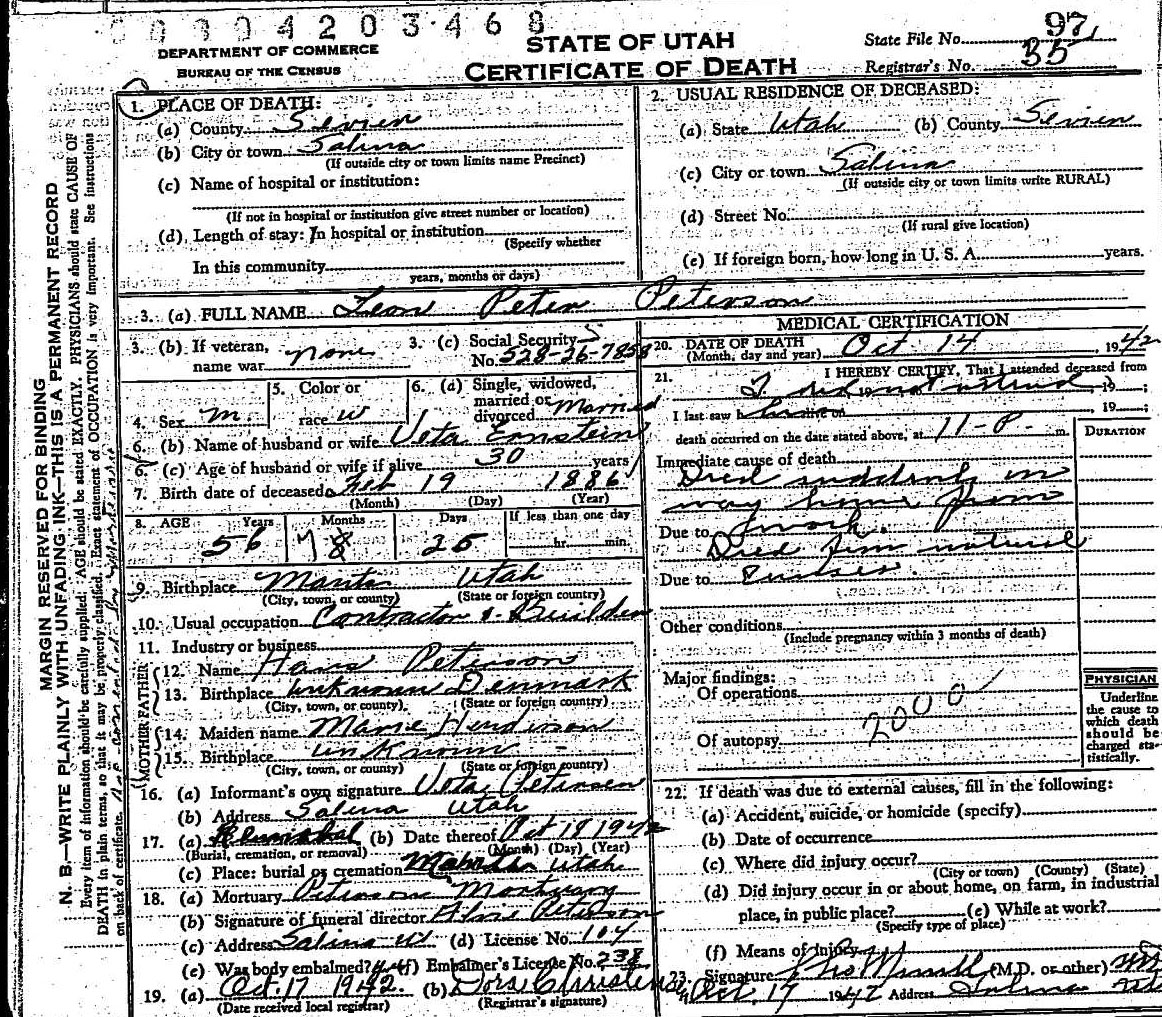 0004203468
DEPARTMENT OF COMMERCE
BUREAU OF THE CENSUS
STATE OF UTAH
CERTIFICATE OF DEATH
State File No. 97
Registrar's No. 35
MARGIN RESERVED FOR BINDING
N. B.—WRITE PLAINLY WITH UNFADING INK—THIS IS A PERMANENT RECORD
Every item of information should be carefully supplied. AGE should be stated EXACTLY. PHYSICIANS should state CAUSE OF
DEATH in plain terms, so that it may be properly classified. Exact statement of OCCUPATION is very important. See instructions
on back of certificate.
1. PLACE OF DEATH:
(a) County Sevier
(b) City or town Salina
(If outside city or town limits name Precinct)
(c) Name of hospital or institution:
(If not in hospital or institution give street number or location)
(d) Length of stay: In hospital or institution
(Specify whether
In this community
years, months or days)
2. USUAL RESIDENCE OF DECEASED:
(a) State Utah (b) County Sevier
(c) City or town Salina
(If outside city or town limits write RURAL)
(d) Street No.
(If rural give location)
(e) If foreign born, how long in U. S. A. years.
3. (a) FULL NAME Leon Peter Peterson
3. (b) If veteran, name war none
3. (c) Social Security No. 528-26-7858
4. Sex m
5. Color or race w
6. (a) Single, widowed, married or divorced Married
6. (b) Name of husband or wife Veta
6. (c) Age of husband or wife if alive 30 years
7. Birth date of deceased Feb 19 1886
(Month) (Day) (Year)
8. AGE Years Months Days If less than one day
56 7 8 25 hr. min.
9. Birthplace Manti Utah
(City, town, or county) (State or foreign country)
10. Usual occupation Contractor & Builder
11. Industry or business
FATHER
12. Name Hans Peterson
13. Birthplace unknown Denmark
(City, town, or county) (State or foreign country)
MOTHER
14. Maiden name
15. Birthplace unknown -
(City, town, or county) (State or foreign country)
16. (a) Informant's own signature Veta Petersen
(b) Address Salina Utah
17. (a) (b) Date thereof Oct 18 1942
(Burial, cremation, or removal) (Month) (Day) (Year)
(c) Place: burial or cremation Utah
18. (a) Mortuary Peterson Mortuary
(b) Signature of funeral director Peterson
(c) Address Salina Ut (d) License No. 104
(e) Was body embalmed? (f) Embalmer's License No. 238
19. (a) Oct. 17 1942. (b)
(Date received local registrar) (Registrar's signature)
MEDICAL CERTIFICATION
20. DATE OF DEATH
(Month, day and year) Oct 14, 1942
21. I HEREBY CERTIFY, That I attended deceased from
I did not attend 19
I last saw h alive on 19
death occurred on the date stated above, at 11-P. m.
DURATION
Immediate cause of death
Died suddenly on
way home from
Due to work.
Died from natural
Due to causes.
Other conditions
(Include pregnancy within 3 months of death)
Major findings:
Of operations
2000
Of autopsy
PHYSICIAN
Underline
the cause to
which death
should be
charged sta-
tistically.
22. If death was due to external causes, fill in the following:
(a) Accident, suicide, or homicide (specify)
(b) Date of occurrence
(c) Where did injury occur?
(City or town) (County) (State)
(d) Did injury occur in or about home, on farm, in industrial
place, in public place? (e) While at work?
(Specify type of place)
(f) Means of Injury
23. Signature (M.D. or other)
Oct. 17 1942 Address Salina